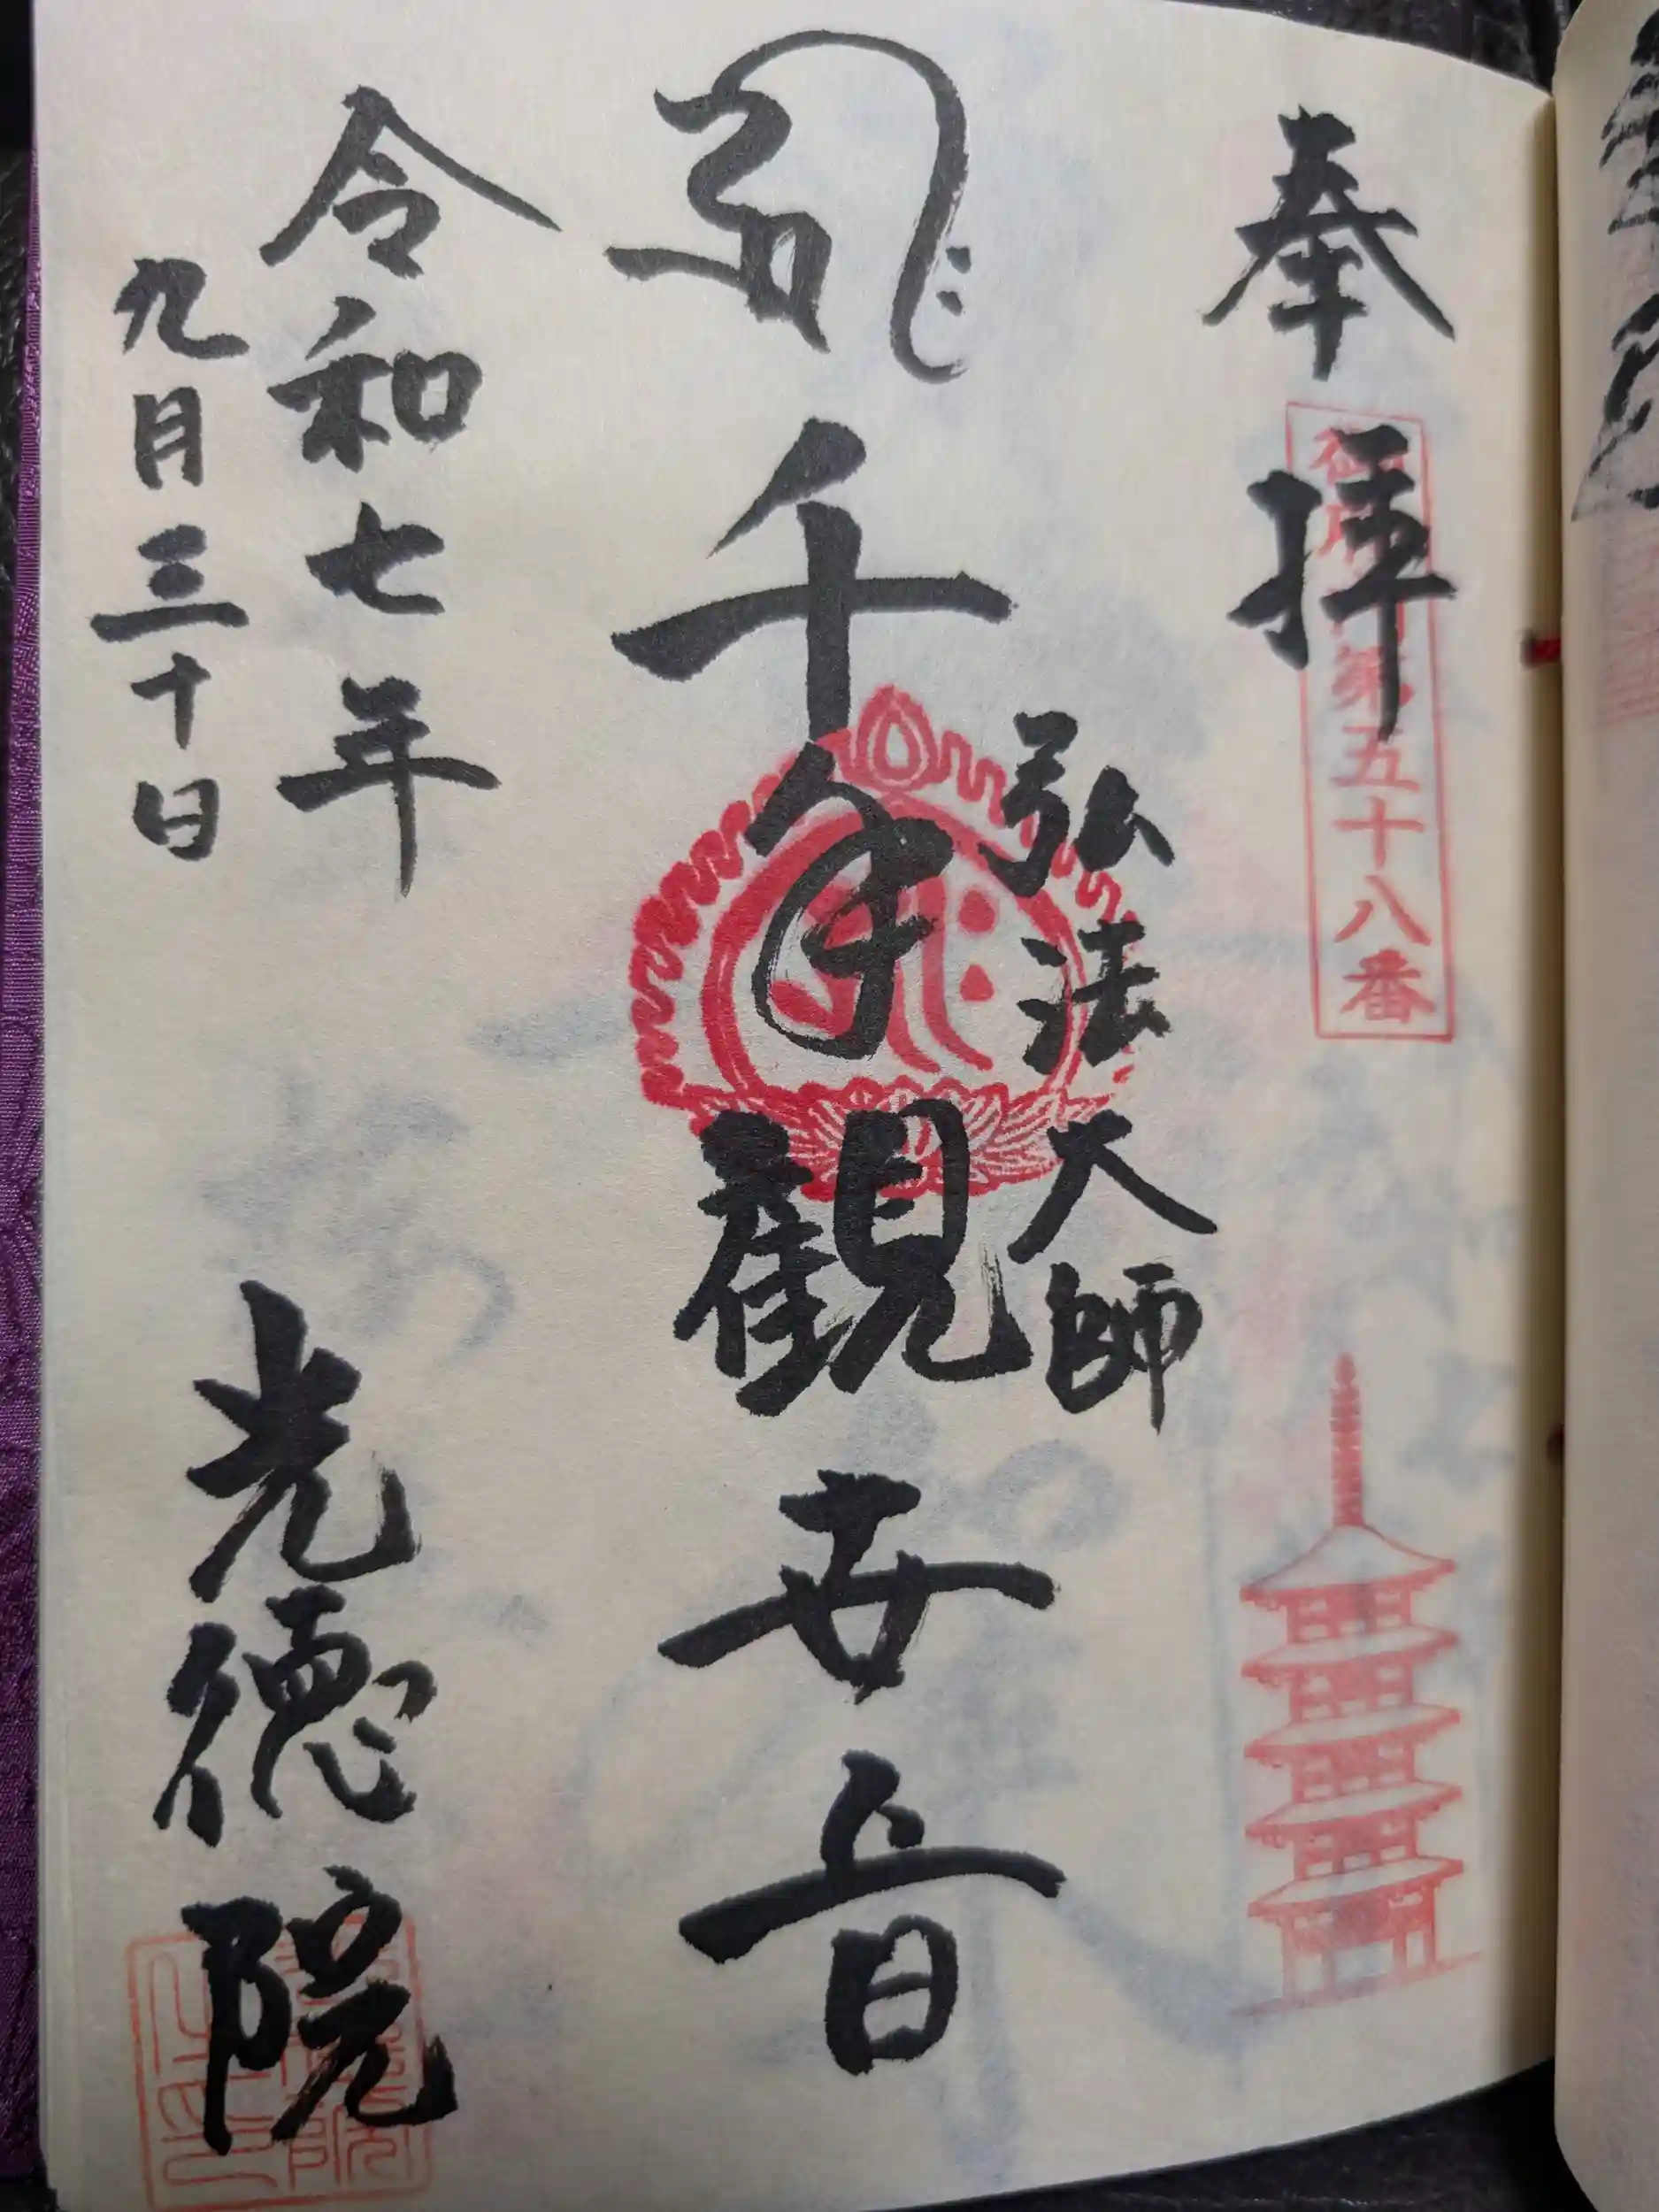 奉拝
御府内第五十八番
弘法大師
千手観世音
令和七年
九月三十日
光徳院